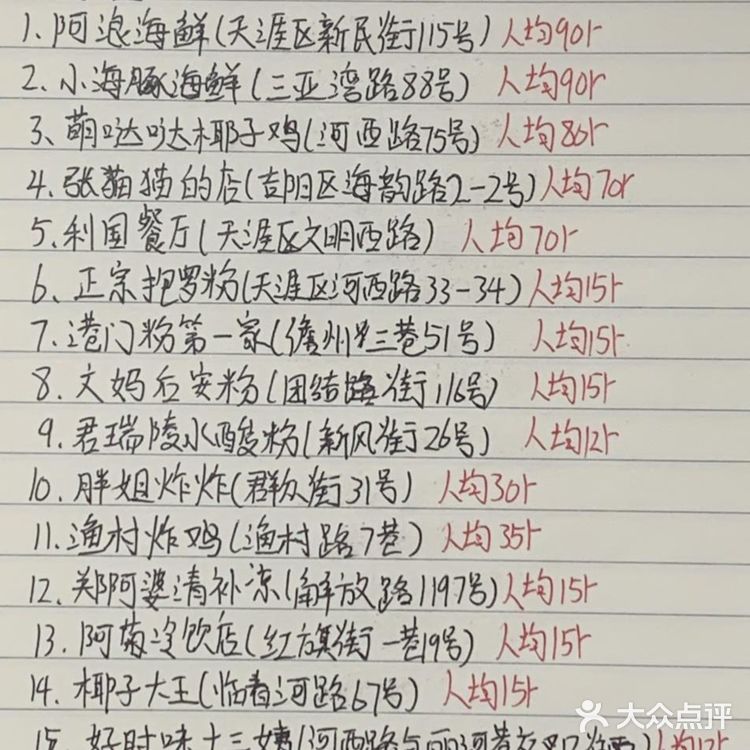 1、阿浪海鲜(天涯区新民街115号) 人均90r
2、小海豚海鲜(三亚湾路88号) 人均90r
3、萌哒哒椰子鸡(河西路75号) 人均80r
4、张猫猫的店(吉阳区海韵路2-2号) 人均70r
5、利国餐厅(天涯区文明西路) 人均70r
6、正宗抱罗粉(天涯区河西路33-34) 人均15r
7、港门粉第一家(儋州 三巷51号) 人均15r
8、文妈后安粉(团结 街116号) 人均15r
9、君瑞陵水酸粉(新风街26号) 人均12r
10、胖姐炸炸(群众街31号) 人均30r
11、渔村炸鸡(渔村路7巷) 人均35r
12、郑阿婆清补凉(解放路1197号) 人均15r
13、阿菊冷饮店(红旗街一巷19号) 人均15r
14、椰子大王(临春河路67号) 人均15r
15、好时味十三姨(河西路与
大众点评